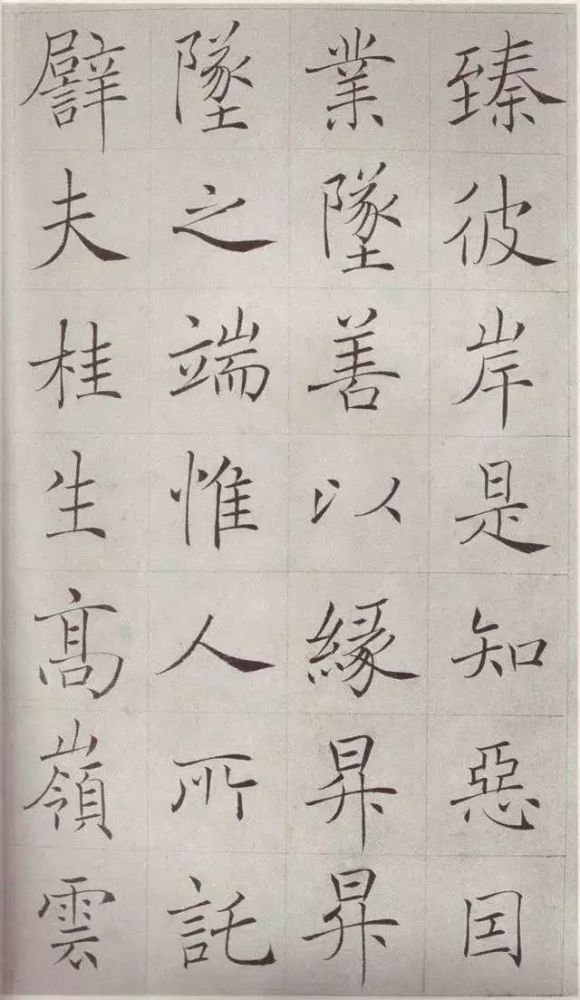 臻彼岸是知惡囙
業墜善以緣昇昇
墜之端惟人所託
譬夫桂生高嶺雲